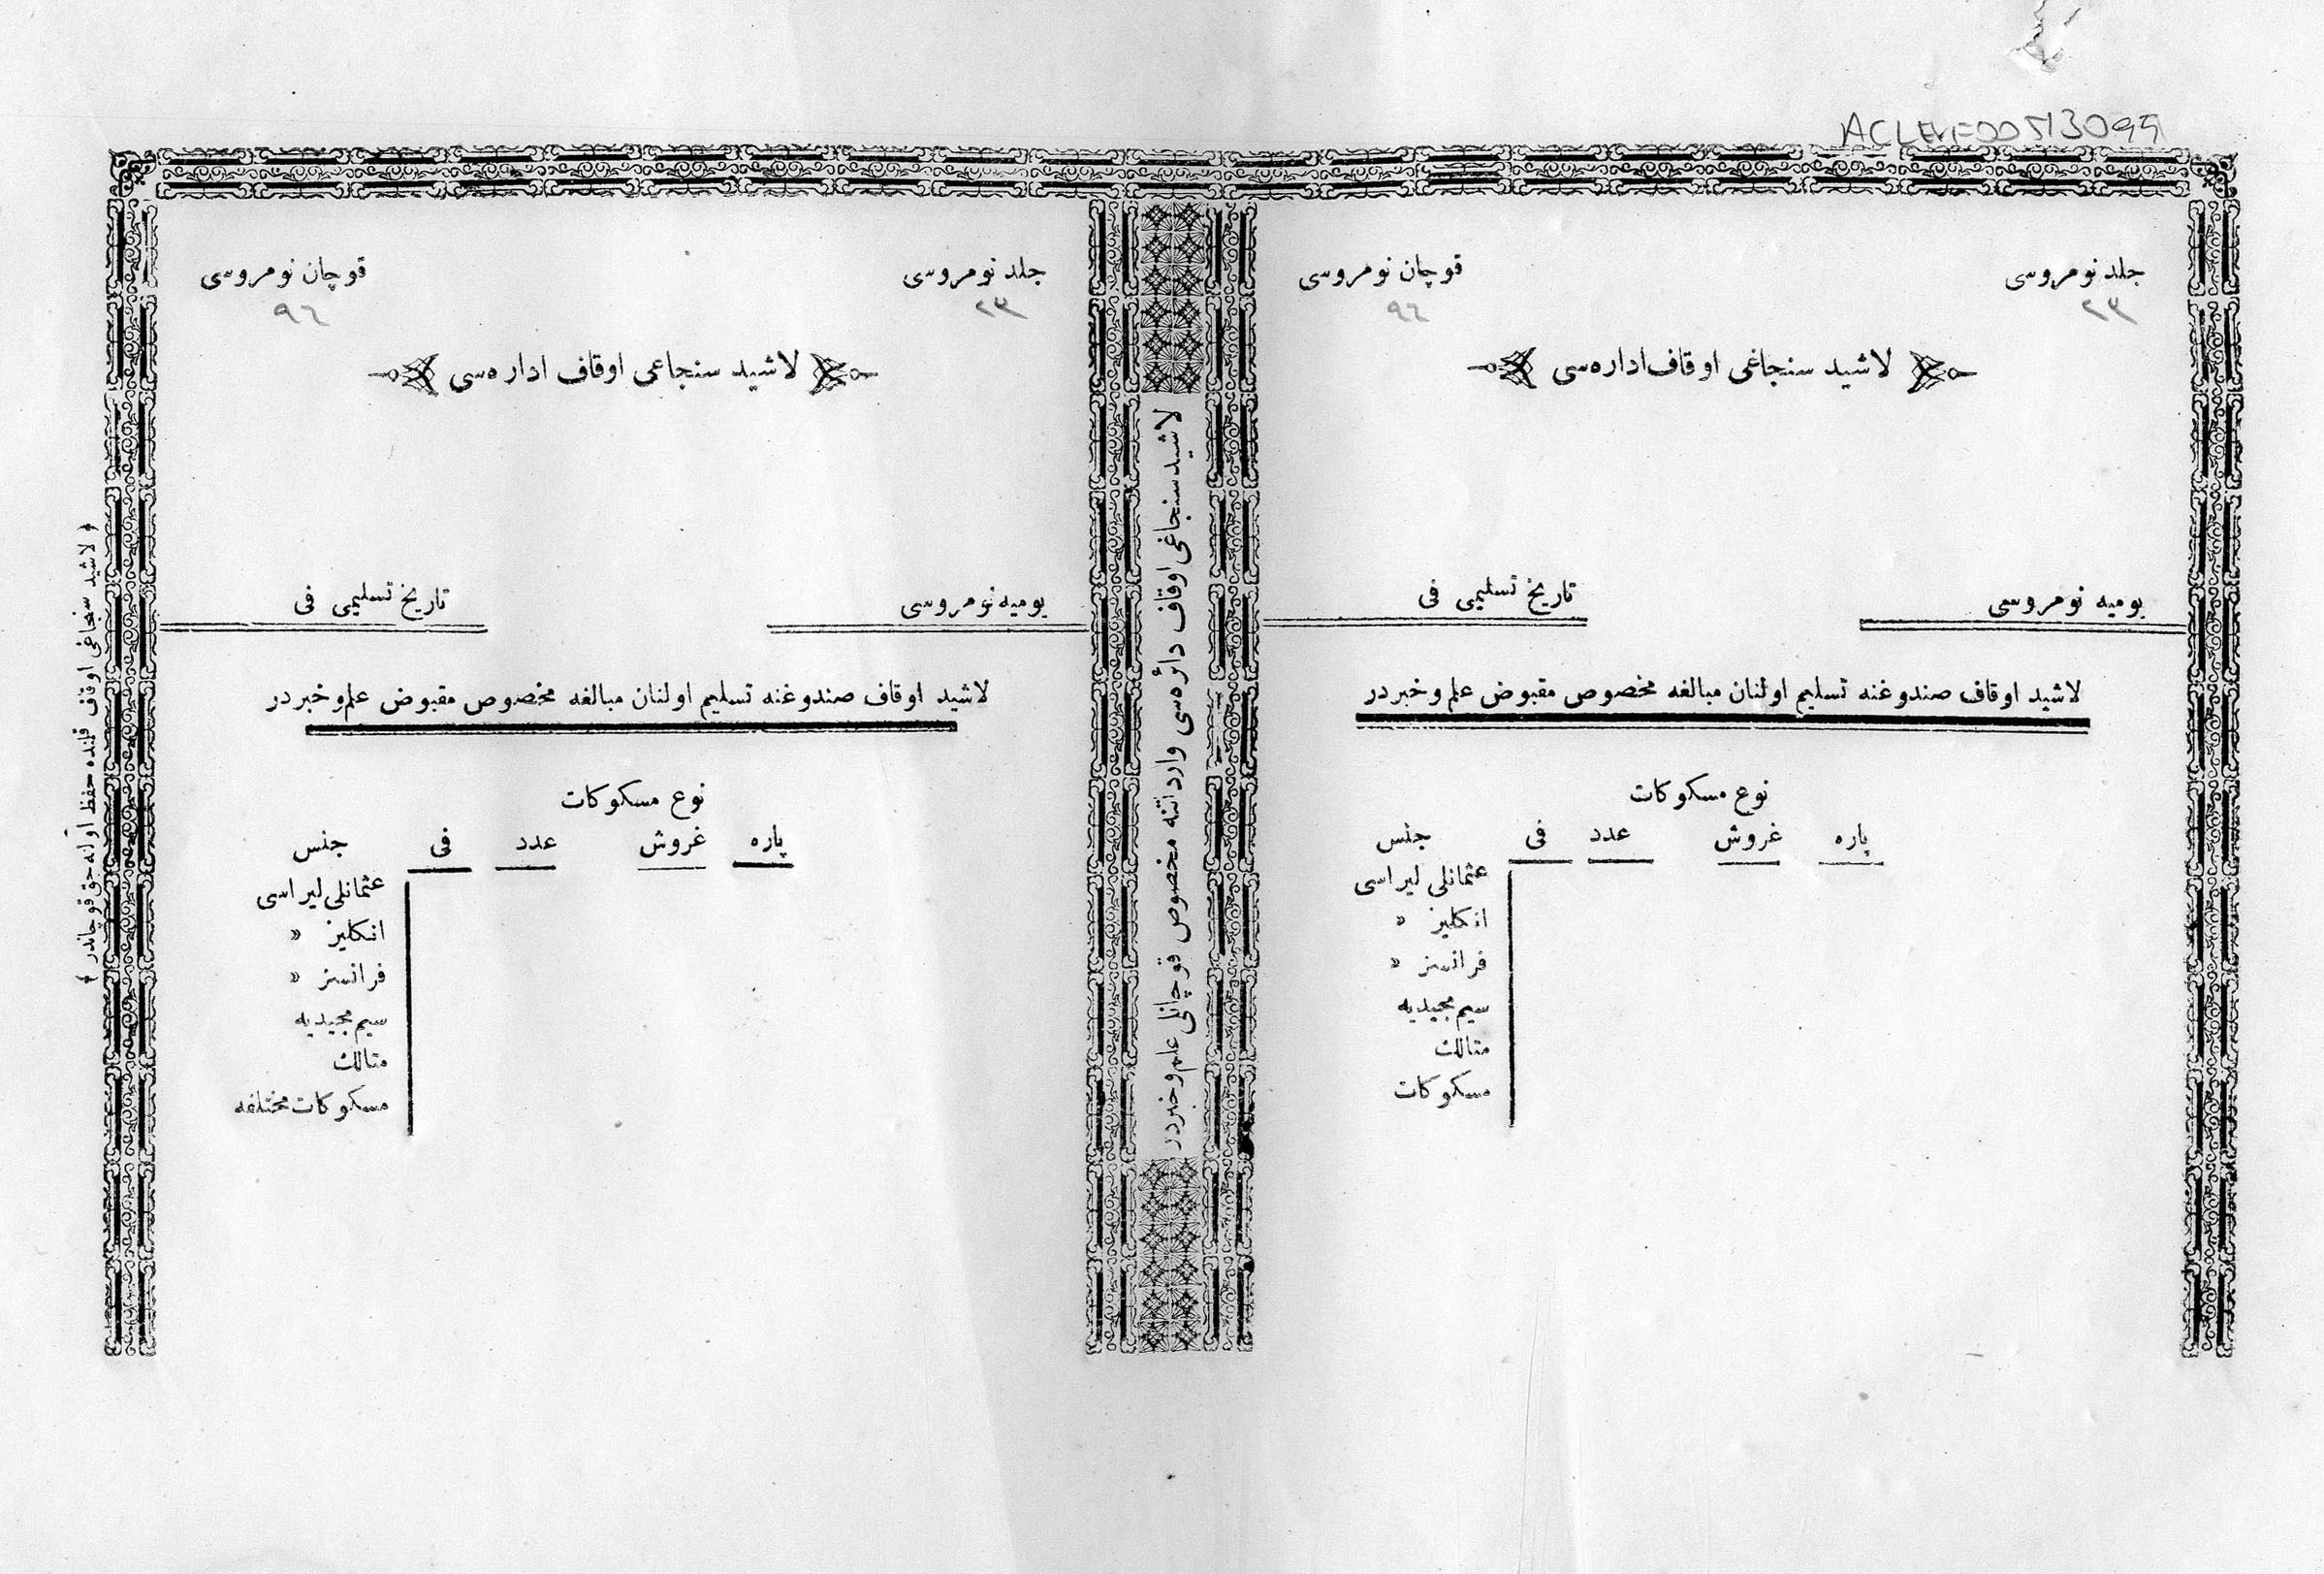 ACLEVF00513099
جلد نومروسی
٢٣
قوچان نومروسی
٩٦
لاشید سنجاغی اوقاف اداره‌سی
یومیه نومروسی
تاریخ تسلیمی فی
لاشید اوقاف صندوغنه تسلیم اولنان مبالغه مخصوص مقبوض علم و خبردر
نوع مسكوكات
پاره غروش عدد فی جنس
عثمانلی لیراسی
انكلیز »
فرانسز »
سیم مجیدیه
متالك
مسكوكات
لاشید سنجاغی اوقاف دائره‌سی وارداتنه مخصوص قوچانلی علم و خبردر
جلد نومروسی
٢٣
قوچان نومروسی
٩٦
لاشید سنجاغی اوقاف اداره‌سی
یومیه نومروسی
تاریخ تسلیمی فی
لاشید اوقاف صندوغنه تسلیم اولنان مبالغه مخصوص مقبوض علم و خبردر
نوع مسكوكات
پاره غروش عدد فی جنس
عثمانلی لیراسی
انكلیز »
فرانسز »
سیم مجیدیه
متالك
مسكوكات مختلفه
﴿ لاشید سنجاغی اوقاف قلنده حفظ اوله‌جق قوچاندر ﴾